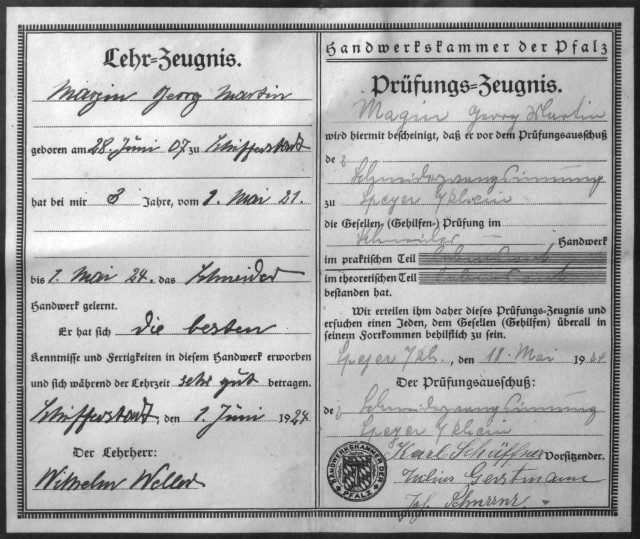 Lehr-Zeugnis.
Magin Georg Martin
geboren am 28. Juni 07 zu Schifferstadt
hat bei mir 3 Jahre, vom 1. Mai 21.
bis 1. Mai 24. das Schneider
Handwerk gelernt.
Er hat sich die besten
Kenntnisse und Fertigkeiten in diesem Handwerk erworben
und sich während der Lehrzeit sehr gut betragen.
Schifferstadt, den 1. Juni 1924
Der Lehrherr:
Wilhelm Weller
Handwerkskammer der Pfalz
Prüfungs-Zeugnis.
Magin Georg Martin
wird hiermit bescheinigt, daß er vor dem Prüfungsausschuß
de
Schneiderzwangsinnung
zu Speyer
die Gesellen- (Gehilfen-) Prüfung im
Schneider Handwerk
im praktischen Teil
im theoretischen Teil
bestanden hat.
Wir erteilen ihm daher dieses Prüfungs-Zeugnis und
ersuchen einen Jeden, dem Gesellen (Gehilfen) überall in
seinem Fortkommen behilflich zu sein.
Speyer, den 18. Mai 1924
Der Prüfungsausschuß:
de Schneiderzwangsinnung
Speyer
Karl Schüffner Vorsitzender.
Julius Gerstmann
HANDWERKSKAMMER DER PFALZ